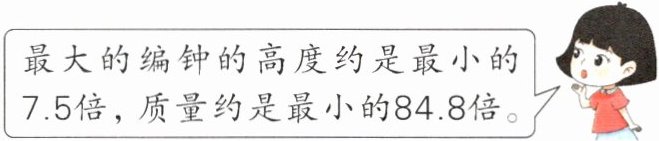 最大的编钟的高度约是最小的
7.5倍，质量约是最小的84.8倍。